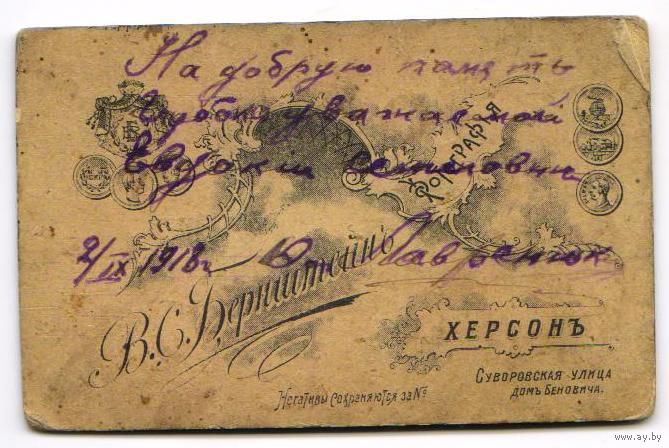 На добрую память
Глубокоуважаемой
Евдокіи Семеновны
2/IX 1918 г. От Лавренюк
ФОТОГРАФІЯ
В. С. Бернштейнъ
ХЕРСОНЪ
СУВОРОВСКАЯ УЛИЦА
ДОМЪ БЕНОВИЧА.
Негативы Сохраняются за №
www.ay.by